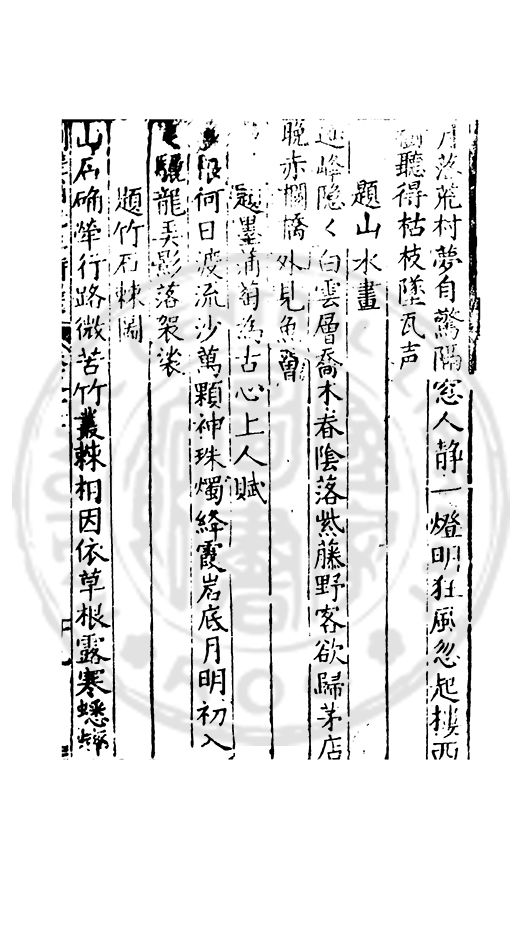 月落荒村夢自驚隔窓人静一燈明狂風忽起樓西
聽得枯枝墜瓦声
題山水畫
峰隐く白雲層喬木春陰落紫藤野客欲歸茅店
晚赤欄橋外見魚罾
題墨蒲萄為古心上人賦
根何日渡流沙萬顆神珠燭絳霞岩底月明初入
驪龍弄影落袈裟
題竹石棘圖
山石确犖行路微苦竹叢棘相因依草根露寒蟋蟀